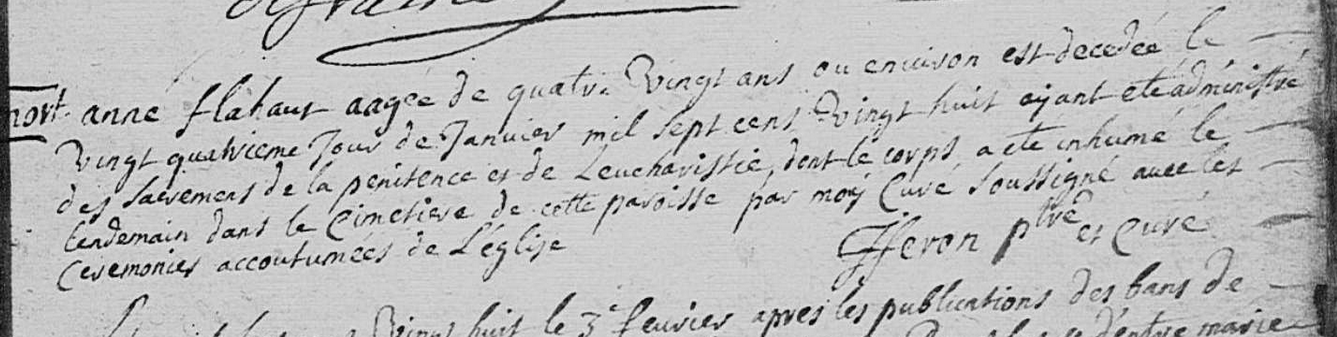 mort. anne flahaut aagée de quatre Vingt ans ou enuiron est decedée le
Vingt quatrieme Jour de Janvier mil sept cens Vingt huit ayant eté administré
des sacremens de la penitence et de Leucharistie, dont le corps a eté inhumé le
lendemain dans le Cimetiere de cette paroisse par moy Curé soussigné auec les
Ceremonies accoutumées de L'église
feron ptre et Curé
Vingt huit le 3e feurier apres les publications des bans de
d'entre marie